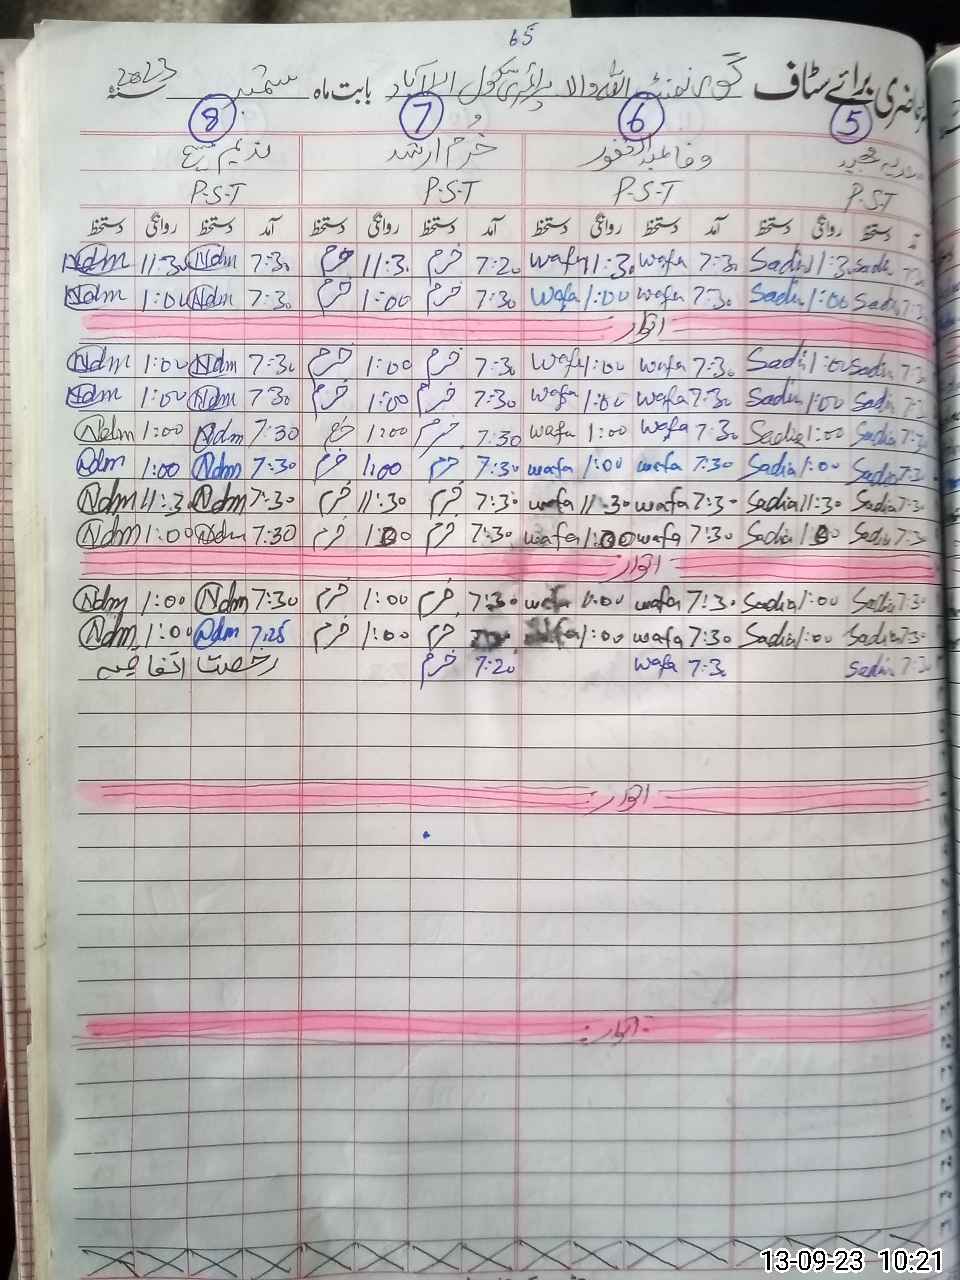 65
حاضری برائے سٹاف گورنمنٹ اللہ والا پرائمری سکول اسلام آباد بابت ماہ ستمبر سنہ 2023
5 6 7 8
سعدیہ مجید وفا عبدالغفور خرم ارشد ندیم
P-S-T P-S-T P-S-T P-S-T
آمد دستخط روانگی دستخط آمد دستخط روانگی دستخط آمد دستخط روانگی دستخط آمد دستخط روانگی دستخط
7:30 Sadia 11:30 Sadia 7:30 wafa 11:30 wafa 7:20 خرم 11:30 خرم 7:30 Ndm 11:30 Ndm
7:30 Sadia 1:00 Sadia 7:30 wafa 1:00 wafa 7:30 خرم 1:00 خرم 7:30 Ndm 1:00 Ndm
اتوار
7:30 Sadia 1:00 Sadia 7:30 wafa 1:00 wafa 7:30 خرم 1:00 خرم 7:30 Ndm 1:00 Ndm
7:30 Sadia 1:00 Sadia 7:30 wafa 1:00 wafa 7:30 خرم 1:00 خرم 7:30 Ndm 1:00 Ndm
7:30 Sadia 1:00 Sadia 7:30 wafa 1:00 wafa 7:30 خرم 1:00 خرم 7:30 Ndm 1:00 Ndm
7:30 Sadia 1:00 Sadia 7:30 wafa 1:00 wafa 7:30 خرم 1:00 خرم 7:30 Ndm 1:00 Ndm
7:30 Sadia 11:30 Sadia 7:30 wafa 11:30 wafa 7:30 خرم 11:30 خرم 7:30 Ndm 11:30 Ndm
7:30 Sadia 1:00 Sadia 7:30 wafa 1:00 wafa 7:30 خرم 1:00 خرم 7:30 Ndm 1:00 Ndm
اتوار
7:30 Sadia 1:00 Sadia 7:30 wafa 1:00 wafa 7:30 خرم 1:00 خرم 7:30 Ndm 1:00 Ndm
7:30 Sadia 1:00 Sadia 7:30 wafa 1:00 خرم 1:00 خرم 7:25 Ndm 1:00 Ndm
7:30 Sadia 7:30 wafa 7:20 خرم رخصت اتفاقیہ
اتوار
اتوار
13-09-23 10:21